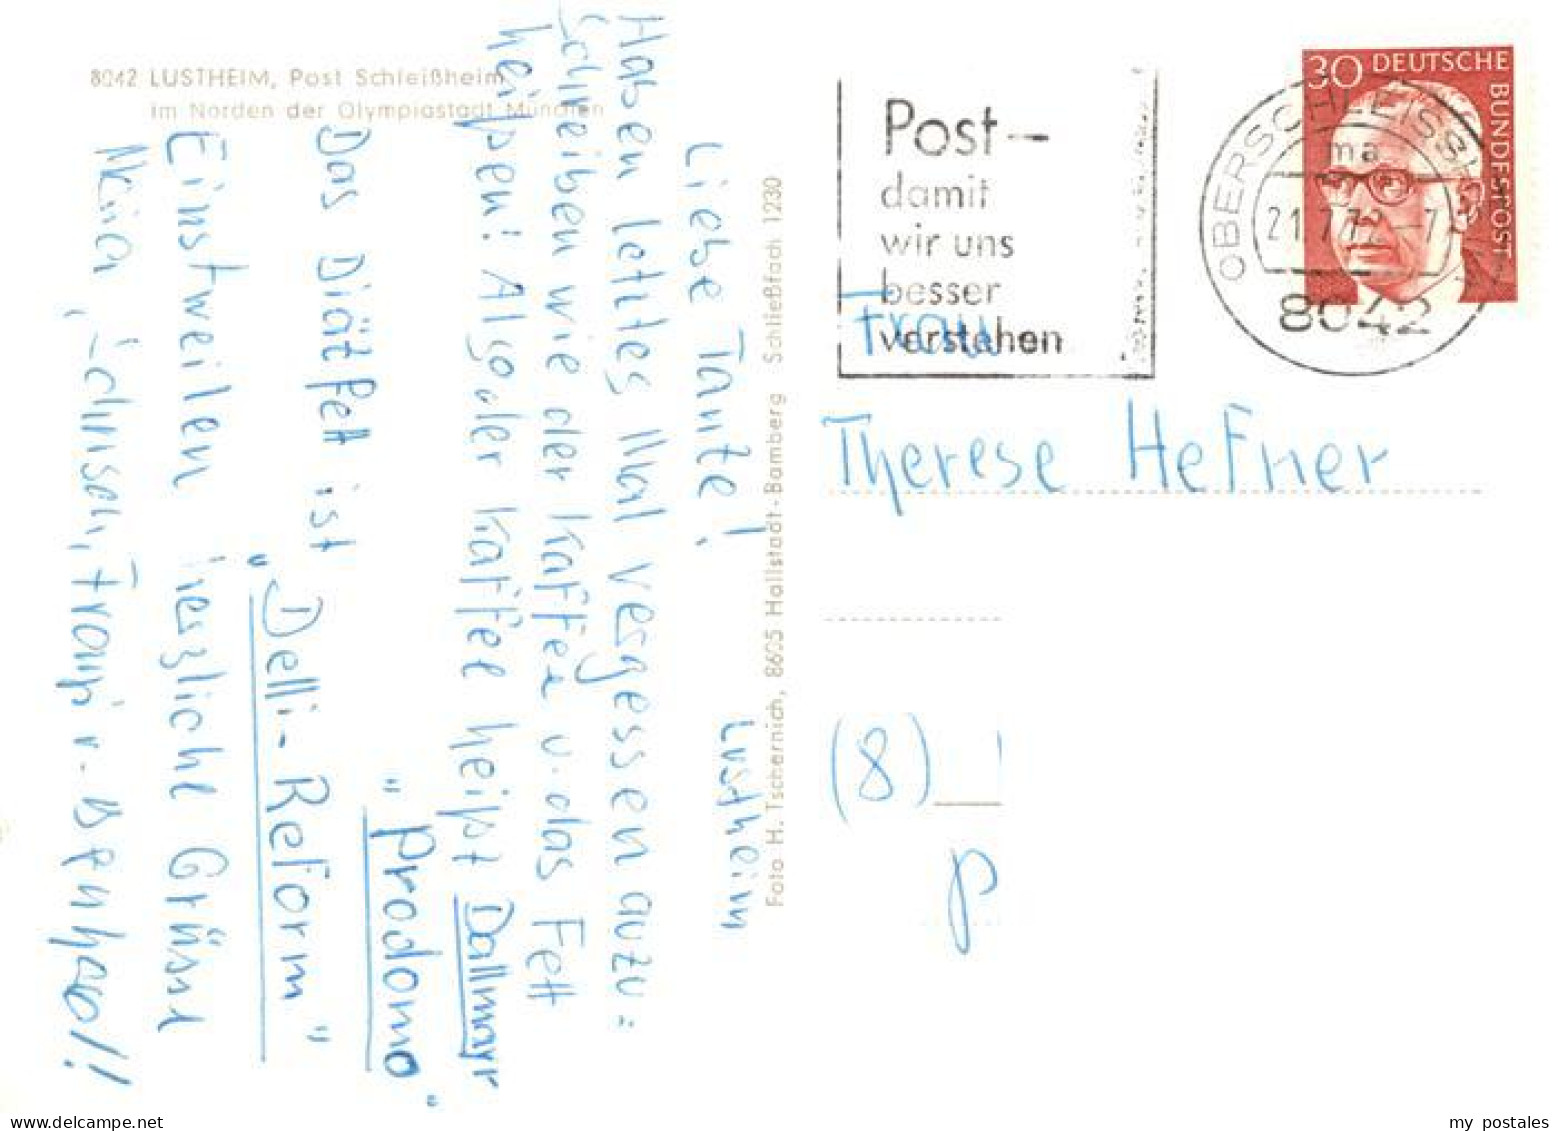 8042 LUSTHEIM, Post Schleißheim
im Norden der Olympiastadt München
Lustheim
Liebe Tante!
Haben letztes Mal vergessen auzu=
schreiben wie der Kaffee u. das Fett
heißen! Also der Kaffee heißt Dallmayr
"Prodomo"
Das Diätfett ist
"Delli-Reform"
Einstweilen herzliche Grüsse
Foto H. Tschernich, 8605 Hallstadt-Bamberg Schließfach 1230
Post-
damit
wir uns
besser
verstehen
30 DEUTSCHE
BUNDESPOST
OBERSCHLEISSHEIM
ma
21.7.72-7
8042
Frau
Therese Hefner
(8)
P
my postales